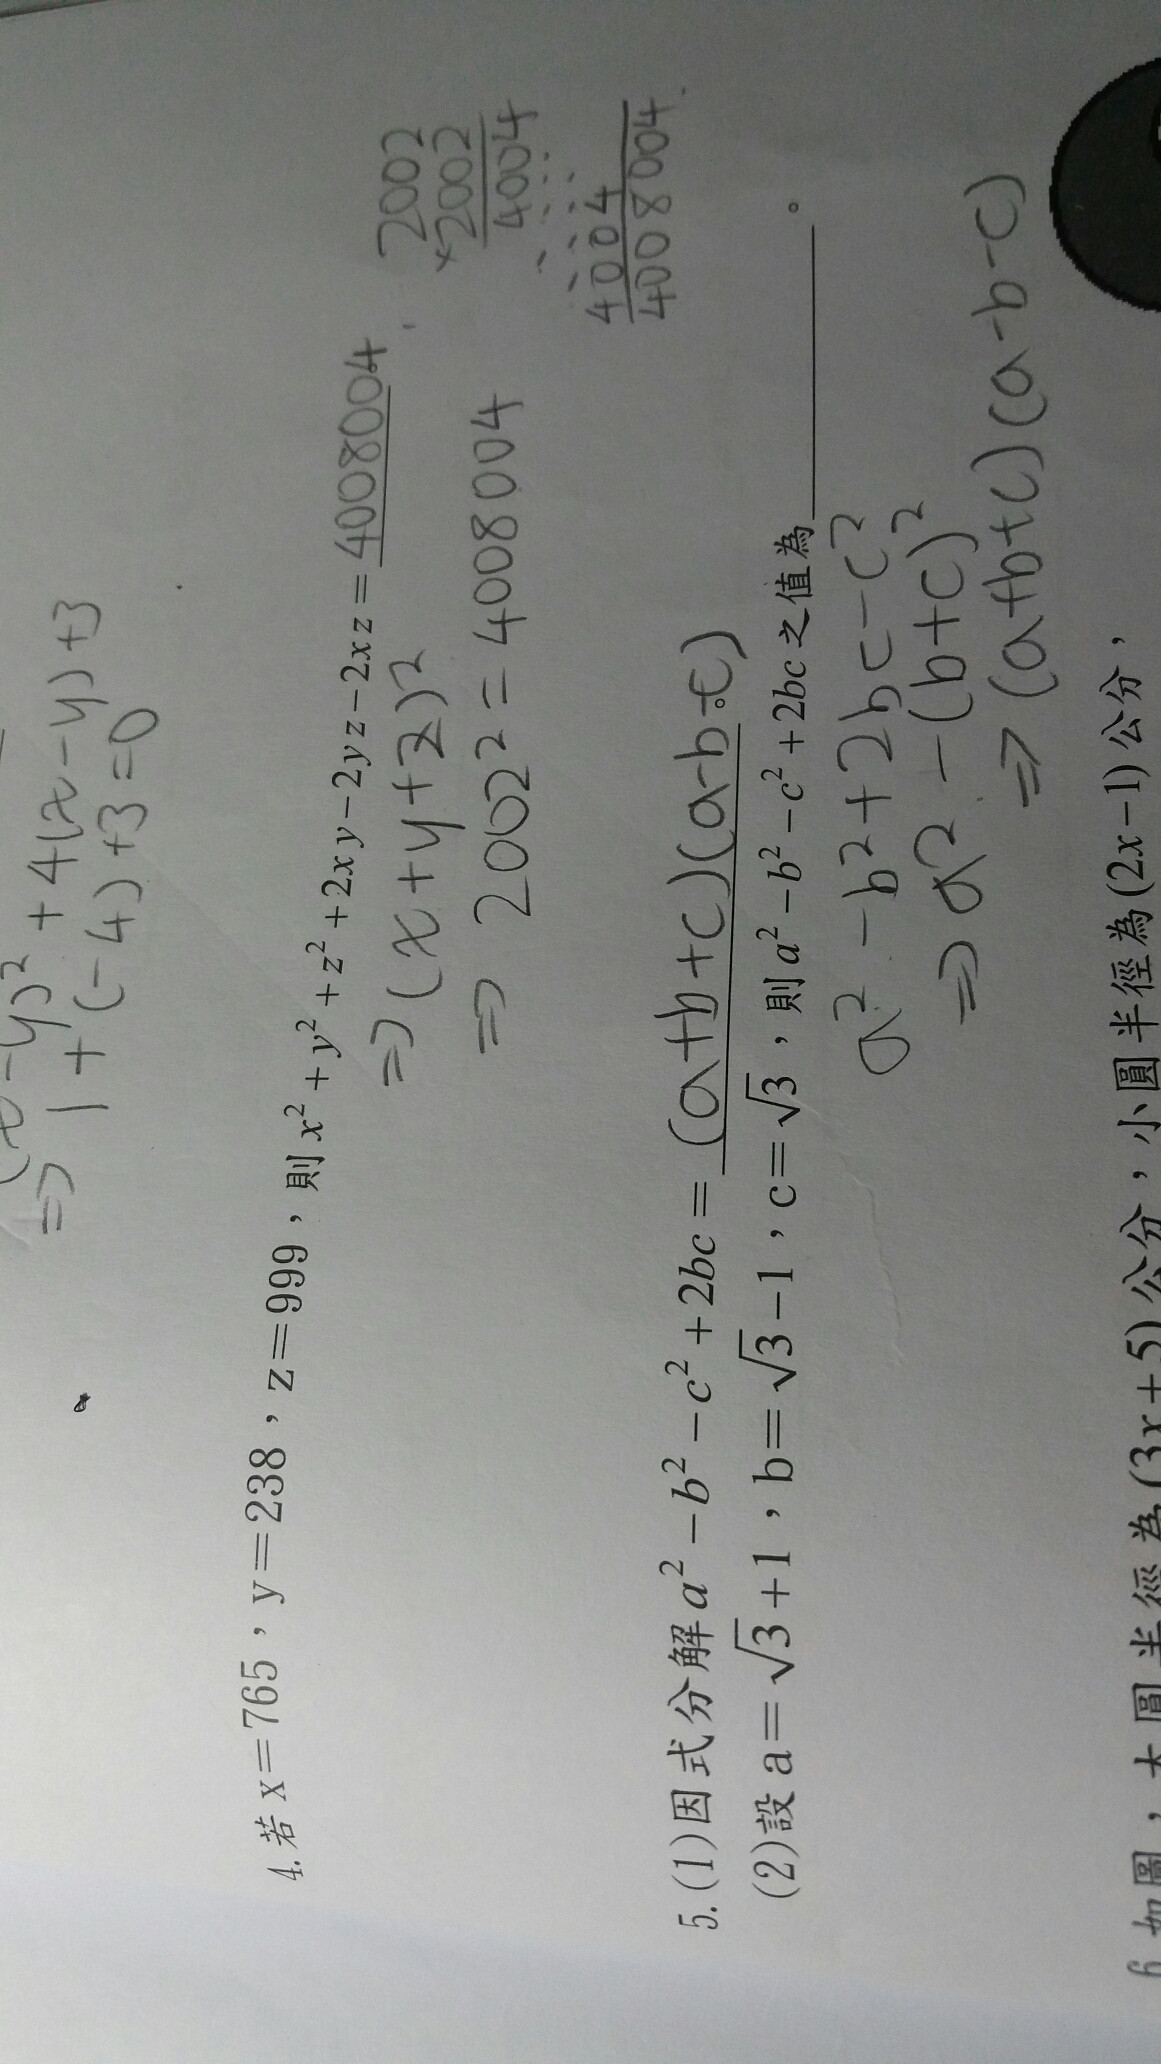 -y)² + 4(x-y)+3
⇒ 1+(-4)+3=0
4.若x=765，y=238，z=999，則x²+y²+z²+2xy-2yz-2xz=4008004
⇒(x+y+z)²
⇒ 2002²=4008004
2002
×2002
4004
4004
4008004
5.(1)因式分解a²-b²-c²+2bc=(a+b+c)(a-b+c)
(2)設a=√3+1，b=√3-1，c=√3，則a²-b²-c²+2bc之值為________。
a²-b²+2bc-c²
⇒a²-(b+c)²
⇒(a+b+c)(a-b-c)
6.如圖，大圓半徑為(3x+5)公分，小圓半徑為(2x-1)公分，